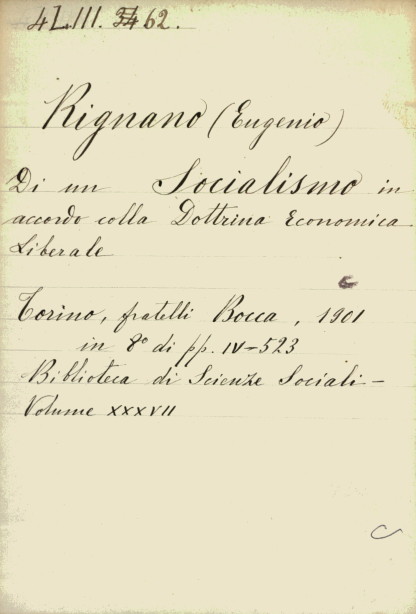 4L.III. 62.
Rignano (Eugenio)
Di un Socialismo in
accordo colla Dottrina Economica
Liberale
Torino, fratelli Bocca, 1901
in 8º di pp. IV-523
Biblioteca di Scienze Sociali-
Volume XXXVII